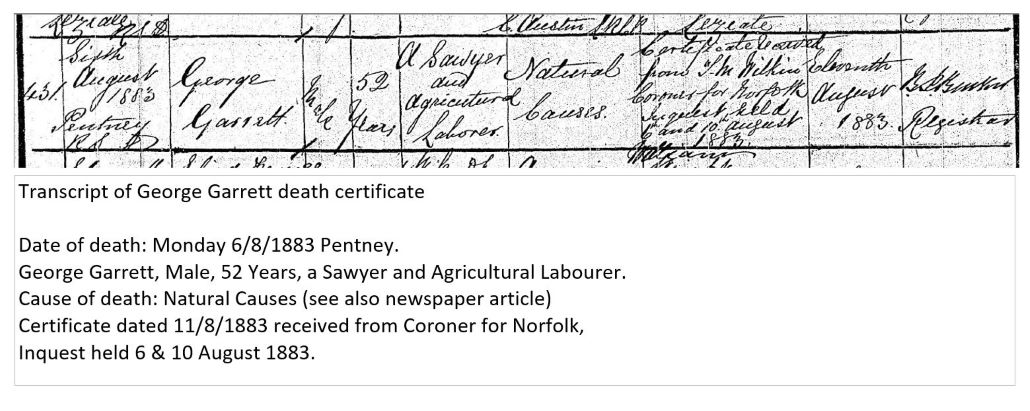 Sixth
August
1883
Pentney
R S D
431
George
Garrett.
Male
52
Years
A Sawyer
and
Agricultural
Laborer
Natural
Causes.
Certificate received
from T. M. Wilkin
Coroner for Norfolk
Inquest held
and 10th August
1883.
Eleventh
August
1883.
Registrar
Transcript of George Garrett death certificate
Date of death: Monday 6/8/1883 Pentney.
George Garrett, Male, 52 Years, a Sawyer and Agricultural Labourer.
Cause of death: Natural Causes (see also newspaper article)
Certificate dated 11/8/1883 received from Coroner for Norfolk,
Inquest held 6 & 10 August 1883.